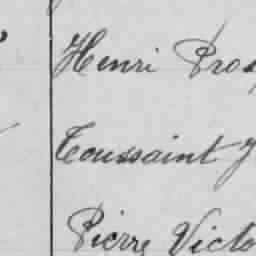 Henri Pros
Toussaint J
Pierre Victo